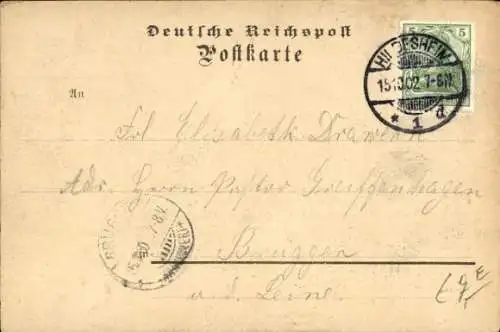 Deutsche Reichspost
Postkarte
5 5
HILDESHEIM
15.10.02. 7-8N.
* 1 d
An
Frl Elisabeth Drawern
Adr. Herrn Pastor Greiffenhagen
7-8V.
Brüggen
a. d. Leine.